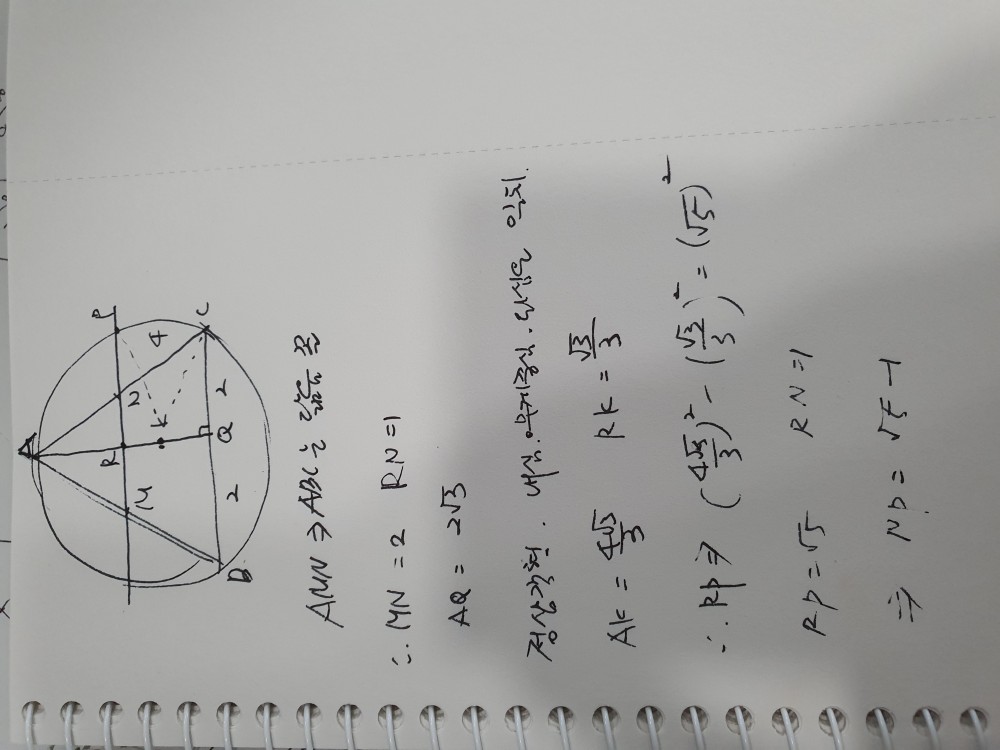 A
P
4
R
N
M
K
C
2
Q
2
B
AMN ⇒ ABC는 닮은 꼴
∴ MN = 2 RN = 1
AQ = 2√3
정삼각형. 내심. 무게중심. 외심은 일치.
AK = 4√3/3 RK = √3/3
∴ RP ⇒ (4√3/3)² - (√3/3)² = (√5)²
RP = √5 RN = 1
⇒ NP = √5 - 1